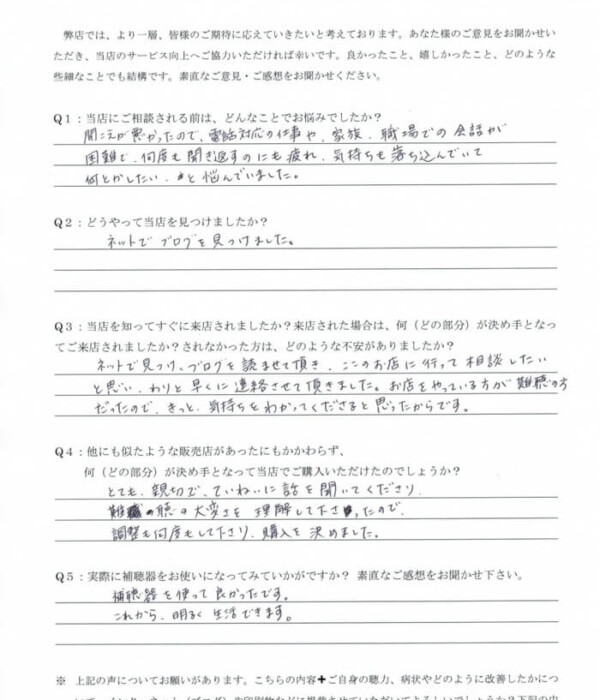 弊店では、より一層、皆様のご期待に応えていきたいと考えております。あなた様のご意見をお聞かせい
ただき、当店のサービス向上へご協力いただければ幸いです。良かったこと、嬉しかったこと、どのような
些細なことでも結構です。素直なご意見・ご感想をお聞かせください。
Q1：当店にご相談される前は、どんなことでお悩みでしたか？
聞こえが悪かったので、電話対応の仕事や、家族、職場での会話が
困難で、何度も聞き返すのにも疲れ、気持ちも落ち込んでいて
何とかしたい、と悩んでいました。
Q2：どうやって当店を見つけましたか？
ネットでブログを見つけました。
Q3：当店を知ってすぐに来店されましたか？来店された場合は、何（どの部分）が決め手となっ
てご来店されましたか？されなかった方は、どのような不安がありましたか？
ネットで見つけ、ブログを読ませて頂き、ここのお店に行って相談したい
と思い、わりと早くに連絡させて頂きました。お店をやっている方が難聴の方
だったので、きっと、気持ちをわかってくださると思ったからです。
Q4：他にも似たような販売店があったにもかかわらず、
何（どの部分）が決め手となって当店でご購入いただけたのでしょうか？
とても、親切で、ていねいに話を聞いてくださり、
難聴の大変さを理解して下さったので、
調整も何度もして下さり、購入を決めました。
Q5：実際に補聴器をお使いになってみていかがですか？ 素直なご感想をお聞かせ下さい。
補聴器を使って良かったです。
これから、明るく生活できます。
※ 上記の声についてお願いがあります。こちらの内容＋ご自身の聴力、病状やどのように改善したかにつ